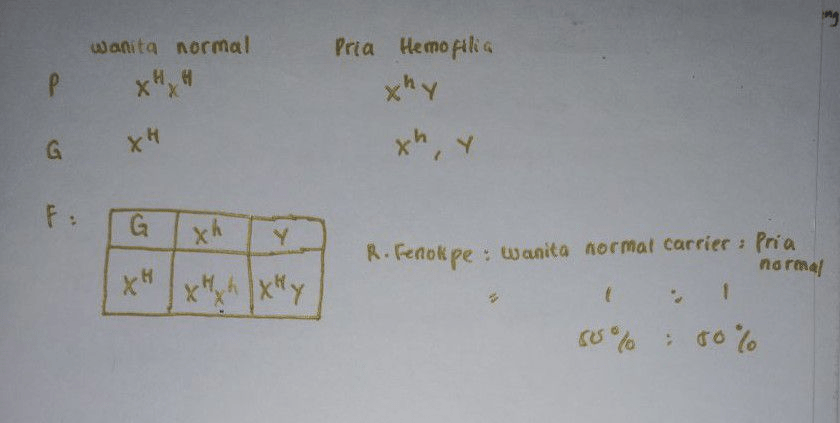 ng
wanita normal Pria Hemofilia
P X^H X^H X^h Y
G X^H X^h, Y
F :
G X^h Y
X^H X^H X^h X^H Y
R. Fenotipe : wanita normal carrier : Pria normal
= 1 : 1
50% : 50%